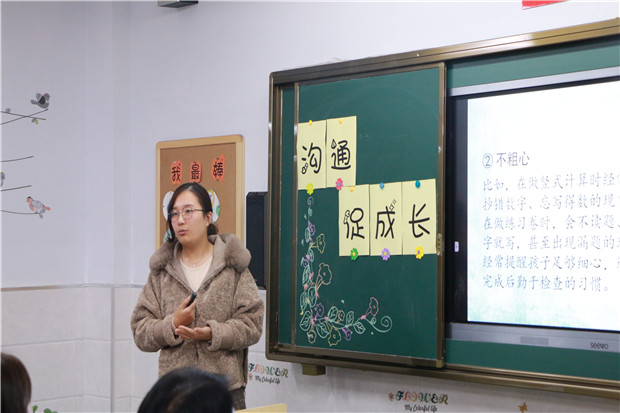 我最棒
沟通
促成长
② 不粗心
比如，在做竖式计算时经
抄错数字、忘写得数的现
在做练习卷时，会不读题
字就写，甚至出现漏题的
经常提醒孩子足够细心，
完成后勤于检查的习惯。
seewo
My Colorful life
My Colorful life